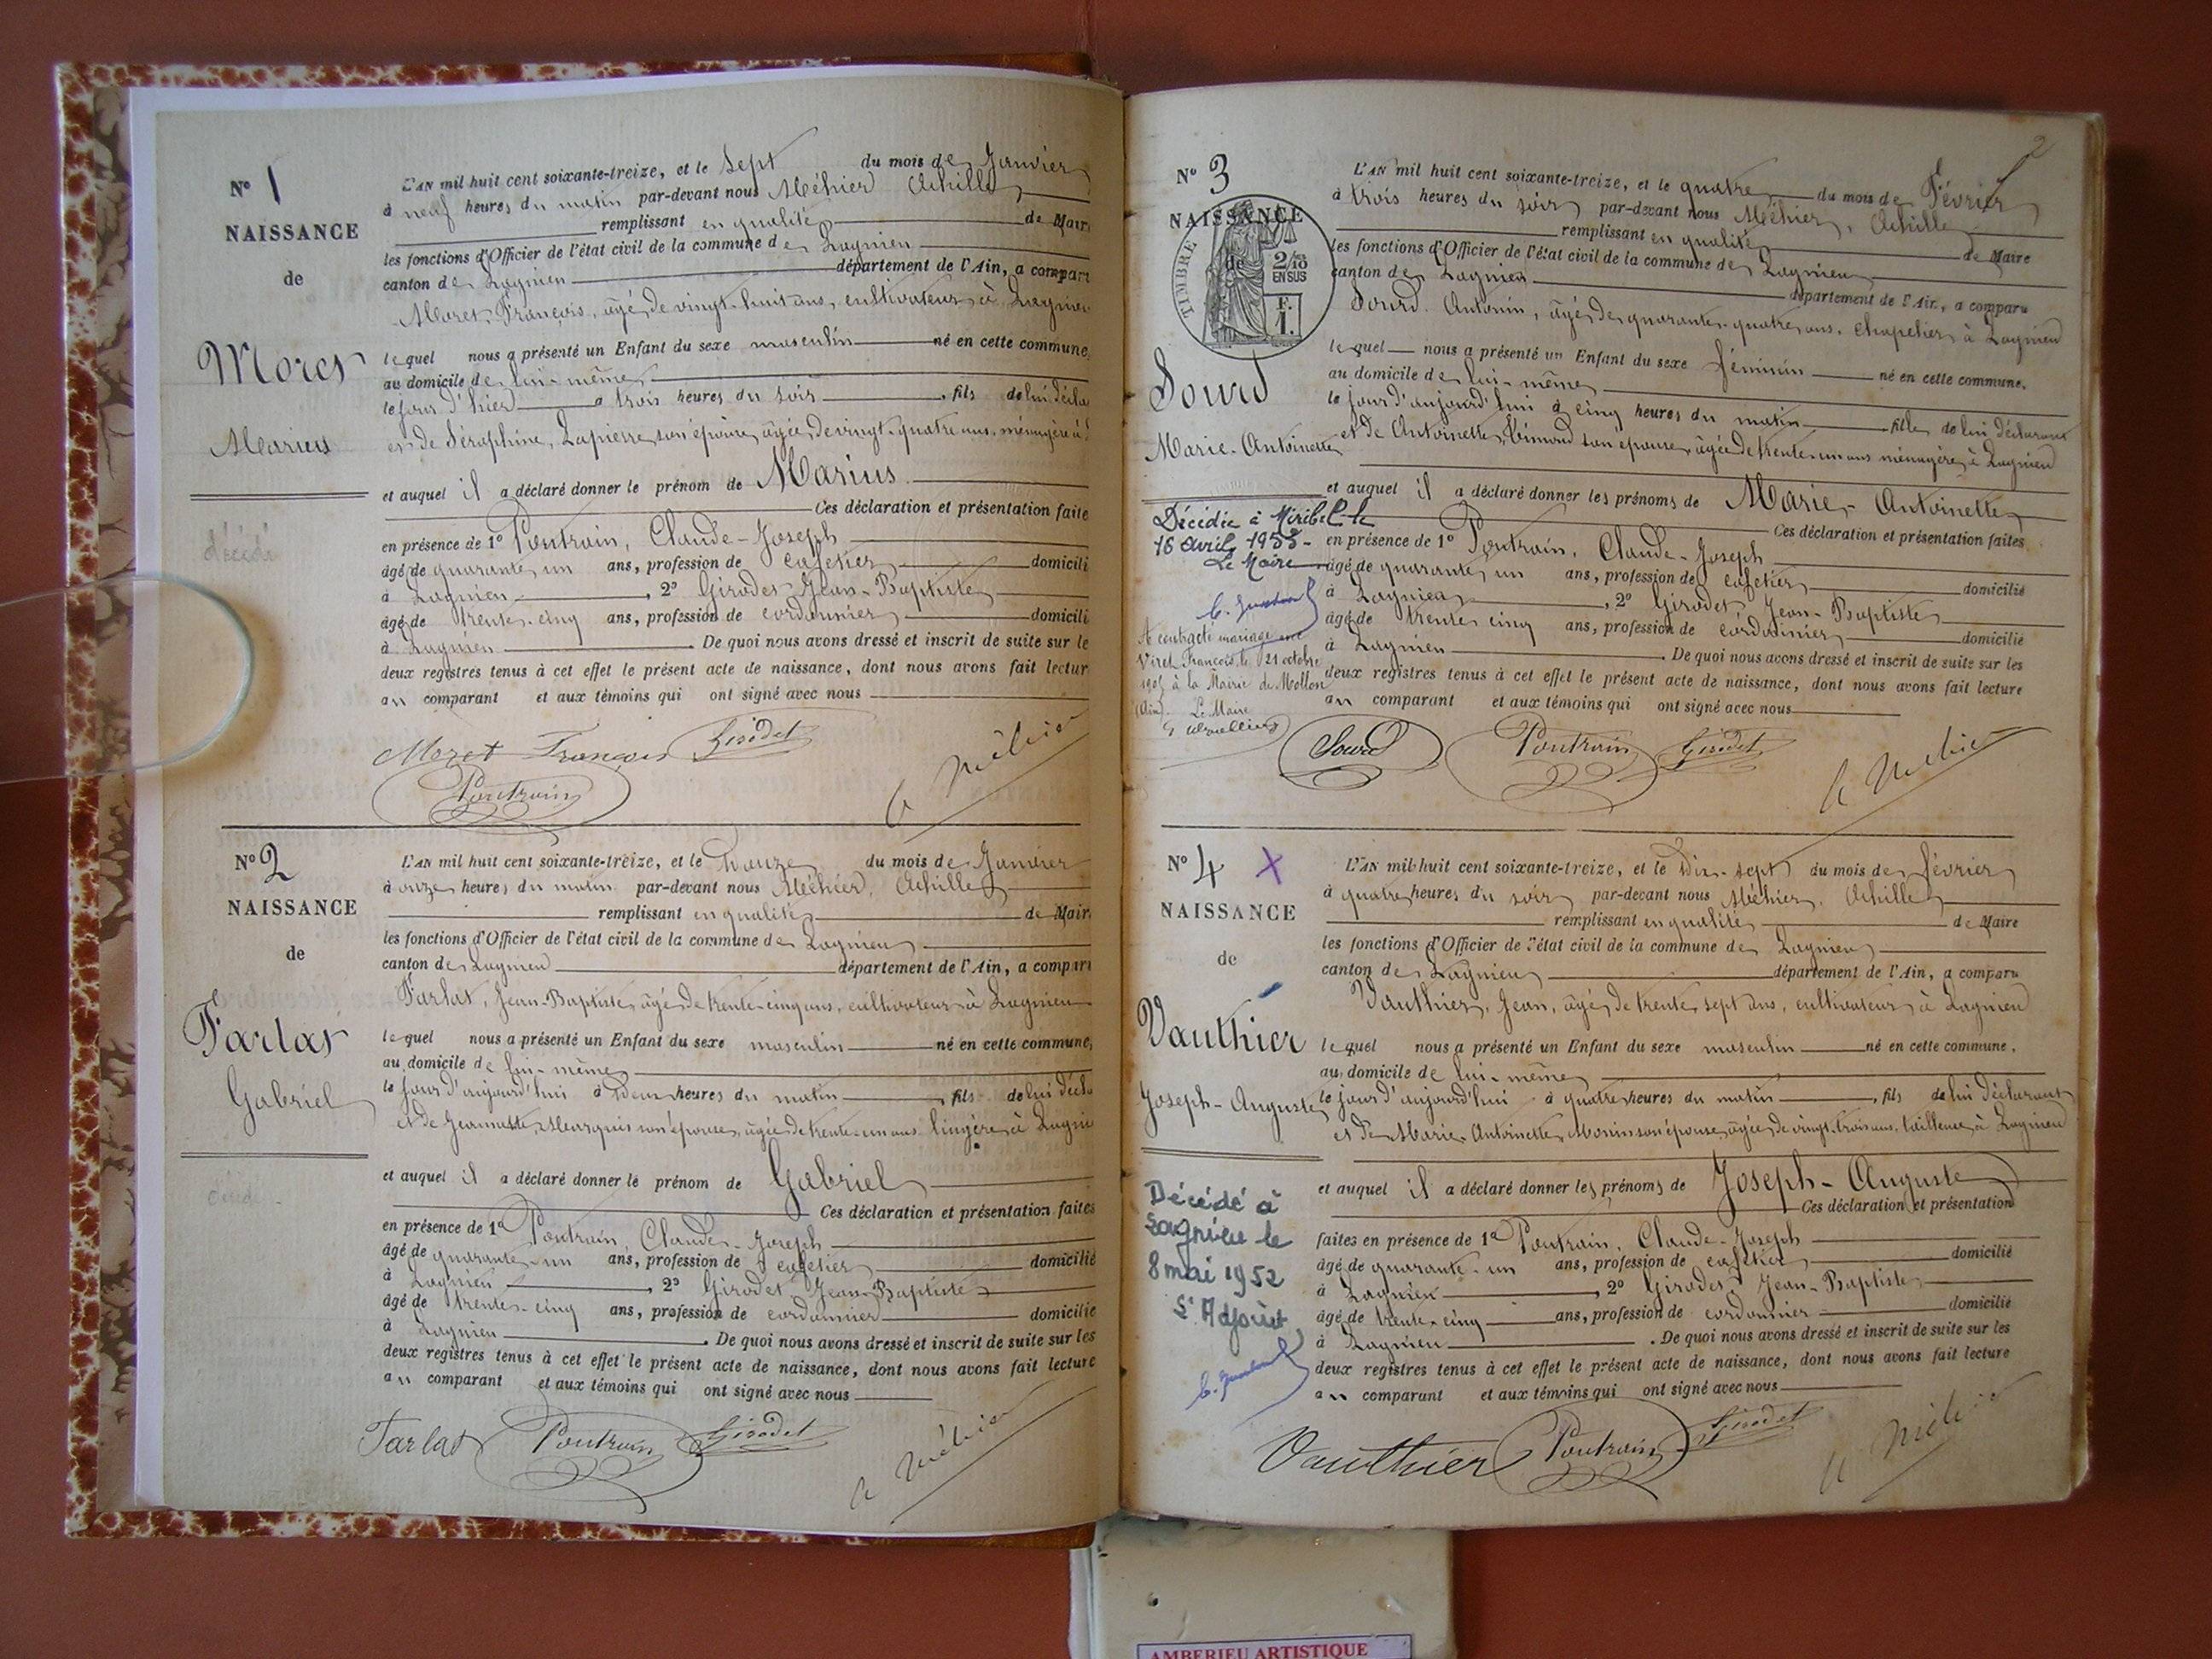 N° 1
NAISSANCE
de
Moret
Marius
décédé
L'AN mil huit cent soixante-treize, et le Sept du mois de Janvier
à neuf heures du matin par-devant nous Méhier Achille
remplissant en qualité de Mair
les fonctions d'Officier de l'état civil de la commune de Lagnieu
canton de Lagnieu département de l'Ain, a compar
Moret, François, âgé de vingt-huit ans, cultivateur à Lagnieu
lequel nous a présenté un Enfant du sexe masculin né en cette commune,
au domicile de lui-même
le jour d'hier à trois heures du soir , fils de lui décla
et de Séraphine Lapierre son épouse, âgée de vingt-quatre ans, ménagère à
et auquel il a déclaré donner le prénom de Marius
Ces déclaration et présentation faite
en présence de 1° Pontrain, Claude-Joseph
âgé de quarante un ans, profession de cafetier domicili
à Lagnieu , 2° Girodet Jean-Baptiste
âgé de trente-cinq ans, profession de cordonnier domicili
à Lagnieu . De quoi nous avons dressé et inscrit de suite sur le
deux registres tenus à cet effet le présent acte de naissance, dont nous avons fait lectur
au comparant et aux témoins qui ont signé avec nous
Moret François Girodet
Pontrain A Méhier
N° 2
NAISSANCE
de
Tarlat
Gabriel
L'AN mil huit cent soixante-treize, et le Douze du mois de Janvier
à onze heures du matin par-devant nous Méhier, Achille
remplissant en qualité de Mair
les fonctions d'Officier de l'état civil de la commune de Lagnieu
canton de Lagnieu département de l'Ain, a comparu
Tarlat, Jean-Baptiste, âgé de trente-cinq ans, cultivateur à Lagnieu
lequel nous a présenté un Enfant du sexe masculin né en cette commune,
au domicile de lui-même
le jour d'aujourd'hui à deux heures du matin , fils de lui décla
et de Jeannette Marquis son épouse, âgée de trente-un ans lingère à Lagnie
et auquel il a déclaré donner le prénom de Gabriel
Ces déclaration et présentation faites
en présence de 1° Pontrain, Claude-Joseph
âgé de quarante-un ans, profession de cafetier domicilié
à Lagnieu , 2° Girodet Jean-Baptiste
âgé de trente-cinq ans, profession de cordonnier domicilié
à Lagnieu . De quoi nous avons dressé et inscrit de suite sur les
deux registres tenus à cet effet le présent acte de naissance, dont nous avons fait lecture
au comparant et aux témoins qui ont signé avec nous
Tarlat Pontrain Girodet A Méhier
2
N° 3
NAISSANCE
de
TIMBRE
2/10
EN SUS
F.
1.
Sourd
Marie-Antoinette
Décédée à Miribel le
16 avril 1955-
Le Maire
A contracté mariage avec
Viret François, le 21 octobre
à la Mairie de Mollon
(Ain). Le Maire
L'AN mil huit cent soixante-treize, et le quatre du mois de Février
à trois heures du soir par-devant nous Méhier, Achille
remplissant en qualité de Maire
les fonctions d'Officier de l'état civil de la commune de Lagnieu
canton de Lagnieu département de l'Ain, a comparu
Sourd Antonin, âgé de quarante-quatre ans, chapelier à Lagnieu
lequel nous a présenté un Enfant du sexe féminin né en cette commune.
au domicile de lui-même
le jour d'aujourd'hui à cinq heures du matin fille de lui déclarant
et de Antoinette son épouse, âgée de trente-un ans ménagère à Lagnieu
et auquel il a déclaré donner les prénoms de Marie-Antoinette
Ces déclaration et présentation faites
en présence de 1° Pontrain, Claude-Joseph
âgé de quarante un ans, profession de cafetier domicilié
à Lagnieu , 2° Girodet Jean-Baptiste
âgé de trente cinq ans, profession de cordonnier domicilié
à Lagnieu . De quoi nous avons dressé et inscrit de suite sur les
deux registres tenus à cet effet le présent acte de naissance, dont nous avons fait lecture
au comparant et aux témoins qui ont signé avec nous
Sourd Pontrain Girodet A Méhier
N° 4 X
NAISSANCE
de
Vauthier
Joseph-Auguste
Décédé à
Lagnieu le
8 mai 1952
L'Adjoint
L'AN mil huit cent soixante-treize, et le Dix-sept du mois de février
à quatre heures du soir par-devant nous Méhier, Achille
remplissant en qualité de Maire
les fonctions d'Officier de l'état civil de la commune de Lagnieu
canton de Lagnieu département de l'Ain, a comparu
Vauthier, Jean, âgé de trente sept ans, cultivateur à Lagnieu
lequel nous a présenté un Enfant du sexe masculin né en cette commune,
au domicile de lui-même
le jour d'aujourd'hui à quatre heures du matin , fils de lui déclarant
et de Marie-Antoinette Monin son épouse, âgée de vingt-trois ans, tailleuse à Lagnieu
et auquel il a déclaré donner les prénoms de Joseph-Auguste
Ces déclaration et présentation
faites en présence de 1° Pontrain, Claude-Joseph
âgé de quarante-un ans, profession de cafetier domicilié
à Lagnieu , 2° Girodet Jean-Baptiste
âgé de trente-cinq ans, profession de cordonnier domicilié
à Lagnieu . De quoi nous avons dressé et inscrit de suite sur les
deux registres tenus à cet effet le présent acte de naissance, dont nous avons fait lecture
au comparant et aux témoins qui ont signé avec nous
Vauthier Pontrain Girodet A Méhier
AMBERIEU ARTISTIQUE